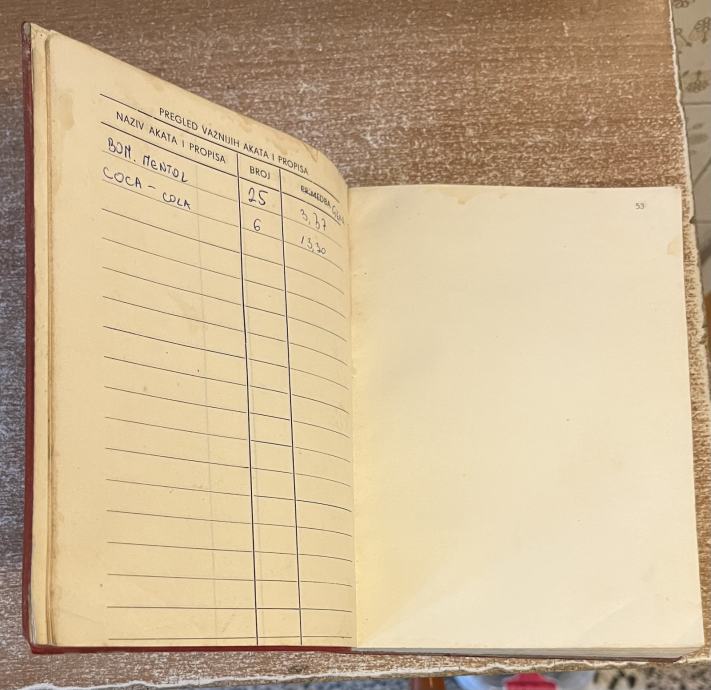 PREGLED VAŽNIJIH AKATA I PROPISA
NAZIV AKATA I PROPISA BROJ
BOM. MENTOL 25 3,37
COCA - COLA 6 13,30
53